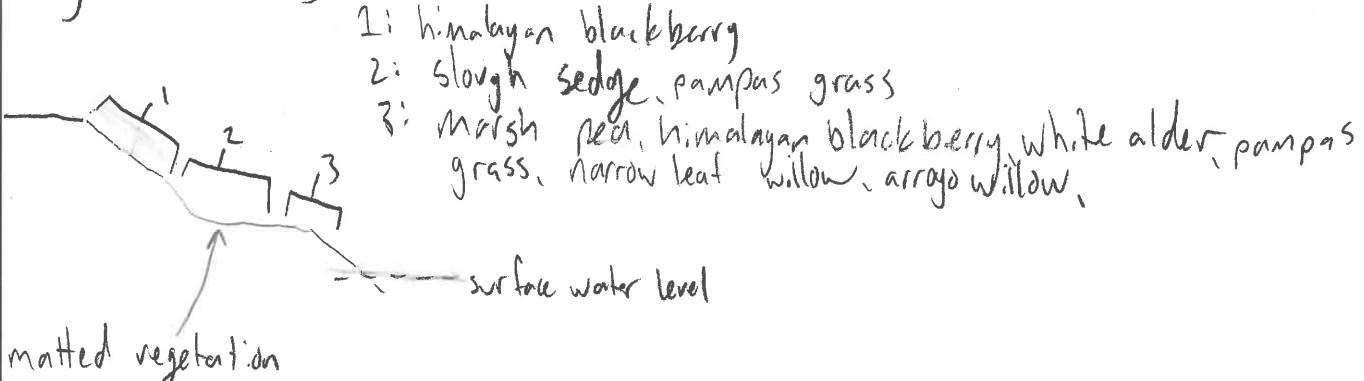 1: himalayan blackberry
2: slough sedge, pampas grass
3: marsh pea, himalayan blackberry, white alder, pampas
grass, narrow leaf willow, arroyo willow,
1
2
3
surface water level
matted vegetation